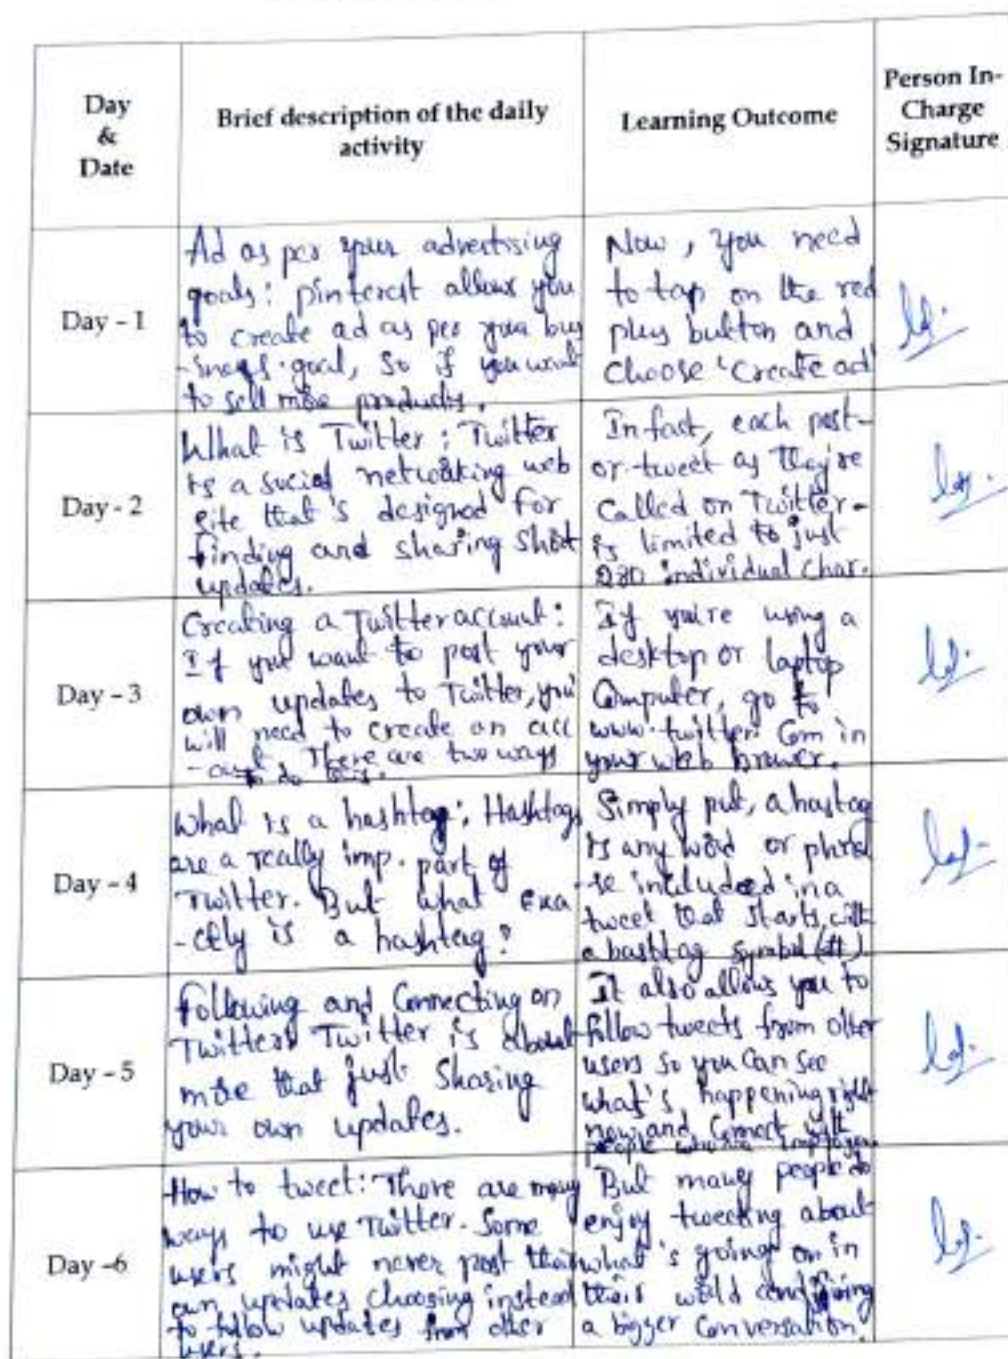 Day
&
Date
Brief description of the daily
activity
Learning Outcome
Person In-
Charge
Signature
Day - 1
Ad as per your advertising
goals: pinterest allows you
to create ad as per your bus
-iness goal, So if you want
to sell more products.
Now, you need
to tap on the red
plus button and
choose 'create ad'
Day - 2
What is Twitter: Twitter
is a social networking web
site that's designed for
finding and sharing short
updates.
In fact, each post-
or-tweet as they're
Called on Twitter-
is limited to just
280 individual char.
Day - 3
Creating a Twitter account:
If you want to post your
own updates to Twitter, you'
will need to create an acc
There are two ways
to do this.
If you're using a
desktop or laptop
Computer, go to
www.twitter.Com in
your web browser.
Day - 4
What is a hashtag: Hashtags
are a really imp. part of
Twitter. But what exa
-ctly is a hashtag?
Simply put, a hashtag
is any word or phra
-se included in a
tweet that starts with
a hashtag symbol (#)
Day - 5
Following and Connecting on
Twitter: Twitter is about
more that just Sharing
your own updates.
It also allows you to
follow tweets from other
users so you can see
what's happening right
now, and Connect with
people who're
Day -6
How to tweet: There are many
ways to use Twitter. Some
users might never post their
own updates choosing instead
to follow updates from other
users.
But many people do
enjoy tweeting about
what's going on in
their world and joining
a bigger Conversation.